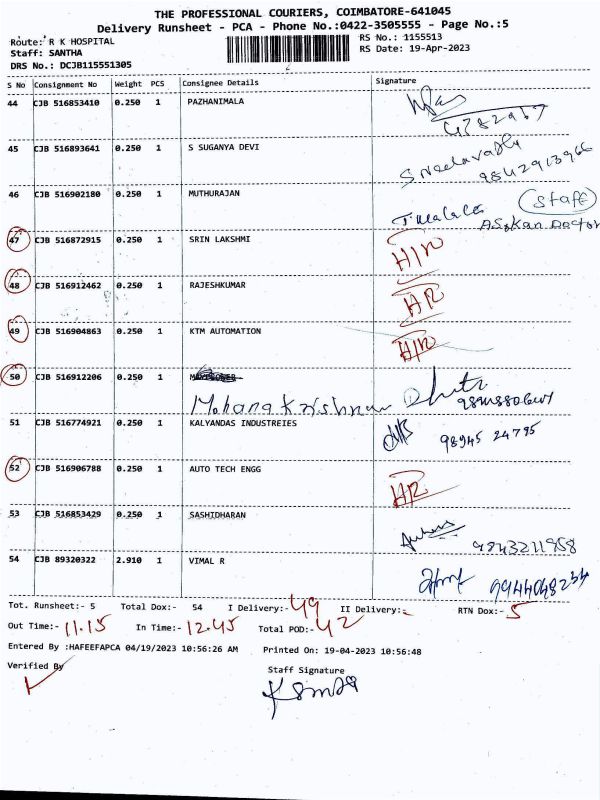 THE PROFESSIONAL COURIERS, COIMBATORE-641045
Delivery Runsheet - PCA - Phone No.:0422-3505555 - Page No.:5
Route: R K HOSPITAL
RS No.: 1155513
Staff: SANTHA
RS Date: 19-Apr-2023
DRS No.: DCJB115551305
S No Consignment No Weight PCS Consignee Details Signature
44 CJB 516853410 0.250 1 PAZHANIMALA
45 CJB 516893641 0.250 1 S SUGANYA DEVI
9842913966
46 CJB 516902180 0.250 1 MUTHURAJAN
(Staff)
ASokan Doctor
47 CJB 516872915 0.250 1 SRIN LAKSHMI
48 CJB 516912462 0.250 1 RAJESHKUMAR
49 CJB 516904863 0.250 1 KTM AUTOMATION
50 CJB 516912206 0.250 1
Mohana Krishnan
51 CJB 516774921 0.250 1 KALYANDAS INDUSTREIES
98945 24795
52 CJB 516906788 0.250 1 AUTO TECH ENGG
53 CJB 516853429 0.250 1 SASHIDHARAN
9843211958
54 CJB 89320322 2.910 1 VIMAL R
9944048234
Tot. Runsheet:- 5 Total Dox:- 54 I Delivery:- 49 II Delivery:- RTN Dox:- 5
Out Time:- 11.15 In Time:- 12.45 Total POD:- 42
Entered By :HAFEEFAPCA 04/19/2023 10:56:26 AM Printed On: 19-04-2023 10:56:48
Verified By
Staff Signature